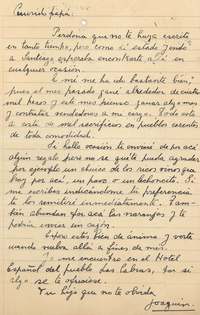 Querido papá:
Perdona que no te haya escrito
en tanto tiempo, pero como he estado yendo
a Santiago esperaba encontrarte allá en
cualquier ocasión.
A mí me ha ido bastante bien;
pues el mes pasado gané alrededor de
mil pesos y este mes pienso ganar algo más
y contratar vendedores a mi cargo. Todo esto
a costa de mil sacrificios en pueblos carentes
de toda comodidad.
Se halla ocasión te enviaré de por acá
algún regalo pero no se que te pueda agradar
por ejemplo un chuico de los ricos vinos que
hay por acá, un pavo o un
me escribes indicándome tu preferencia
te los remitiré inmediatamente. Tam-
bién abundan por acá las naranjas y te
podría enviar un cajón.
Espero estés bien de ánimo y verte
cuando vuelva allá a fines de mes.
Yo me encuentro en el Hotel
Español del pueblo Las Cabras, por si
algo se te ofreciere.
Tu hijo que no te olvida
Joaquín.